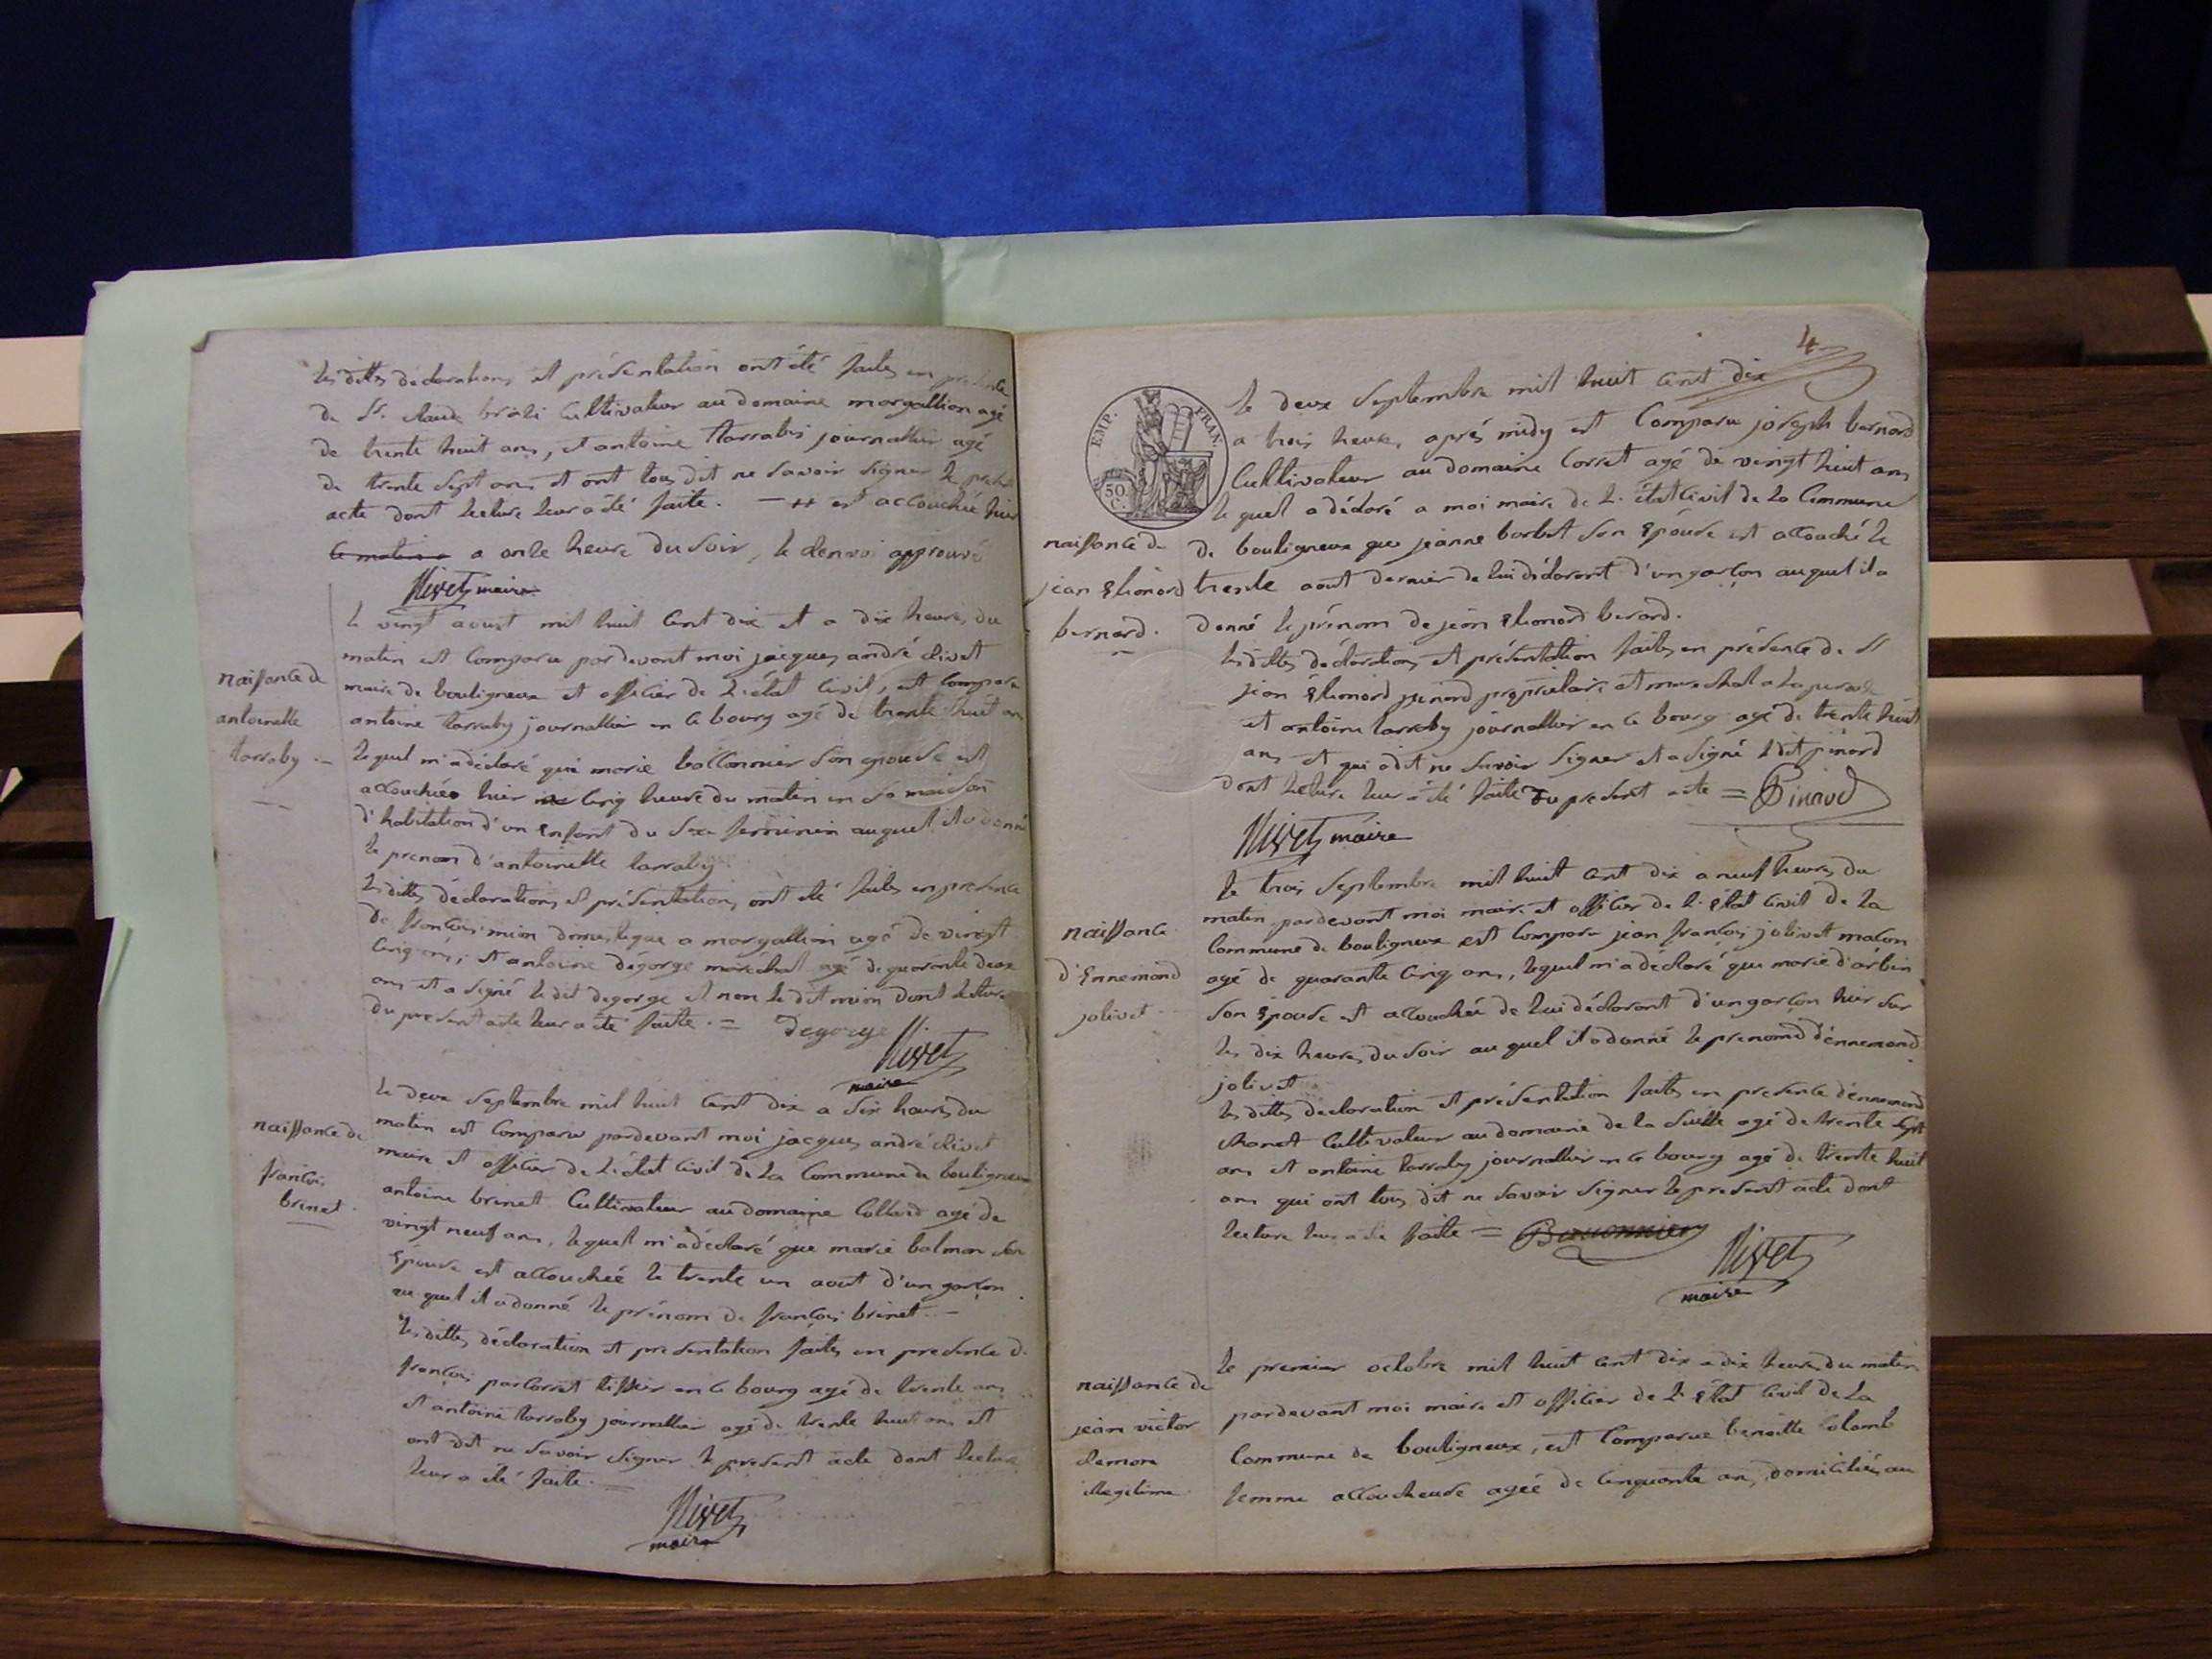 les dittes déclarations et présentation ont été faites en présence
de Sr. claude brazi Cultivateur au domaine morgallion agé
de trente huit ans, et antoine tarraby journallier agé
de trente sept ans et ont tous dit ne savoir signer le present
acte dont lecture leur a été faite. — ++ est accouchée hier
ce matin a a onze heure du soir, le denvoi approuvé
Nivet maire
le vingt aoust mil huit Cent dix et a dix heures du
matin est Comparu pardevant moi jacques andré nivet
maire de bouligneux et officier de l'état Civil, est Comparu
antoine tarraby journallier en ce bourg agé de trente huit ans
lequel m'a déclaré que marie ballonnier son epouse est
accouchée hier a Cinq heure du matin en sa maison
d'habitation d'un Enfant du Sexe feminin auquel il a donné
le prenom d'antoinette tarraby
les dittes déclarations et présentations ont été faites en presence
de françois mion domestique a morgallion agé de vingt
Cinq ans, et antoine degorge maréchal agé de quarante deux
ans et a signé le dit degorge et non le dit mion dont lecture
du present acte leur a été faite. = Degorge
Nivet
maire
le deux Septembre mil huit Cent dix a Six heures du
matin est Comparu pardevant moi jacques andré nivet
maire et officier de l'état Civil de la Commune de bouligneux
antoine brinet Cultivateur au domaine Collard agé de
vingt neuf ans, lequel m'a déclaré que marie balman son
Epouse est accouchée le trente un aout d'un garçon
au quel il a donné le prénom de françois brinet. —
les dittes déclaration et presentation faites en presence de
françois tissier en ce bourg agé de trente ans
et antoine tarraby journallier agé de trente huit ans et
ont dit ne savoir signer le present acte dont lecture
leur a été faite. =
Nivet
maire
naissance de
antoinette
tarraby. —
naissance de
françois
brinet.
4
EMP. FRAN.
50.
C.
le deux Septembre mil huit Cent dix
a trois heures après midy est Comparu joseph bernard
Cultivateur au domaine Corset agé de vingt huit ans
le quel a déclaré a moi maire de l'état Civil de la Commune
de bouligneux que jeanne barbet son Epouse est accouché le
trente aout dernier de lui déclarant d'un garçon auquel il a
donné le prénom de jean Eleonord berard.
les dittes déclaration et présentation faites en présence de Sr
jean Eleonord pinord propriétaire et marechal a
et antoine tarraby journallier en ce bourg agé de trente huit
ans et qui a dit ne savoir signer et a signé ledit pinord
dont lecture leur a été faite du present acte = Pinard
Nivet maire
le trois Septembre mil huit Cent dix a neuf heures du
matin pardevant moi maire et officier de l'Etat Civil de la
Commune de bouligneux est Comparu jean françois jolivet maçon
agé de quarante Cinq ans, lequel m'a déclaré que marie d'arbin
son Epouse est accouchée de lui déclarant d'un garçon hier sur
les dix heures du soir au quel il a donné le prenom d'ennemond
jolivet
les dittes declaration et présentation faites en presence d'ennemond
chanet Cultivateur au domaine de la Suitte agé de trente sept
ans et antoine tarraby journallier en ce bourg agé de trente huit
ans qui ont tous dit ne savoir signer le present acte dont
lecture leur a été faite =
Nivet
maire
le premier octobre mil huit Cent dix a dix heures du matin
pardevant moi maire et officier de l'Etat Civil de la
Commune de bouligneux, est Comparue benoitte Colomb
femme accoucheuse agée de Cinquante ans, domiciliée au
naissance de
jean Eleonord
bernard.
naissance
d'Ennemond
jolivet
naissance de
jean victor
clemore
illegitime